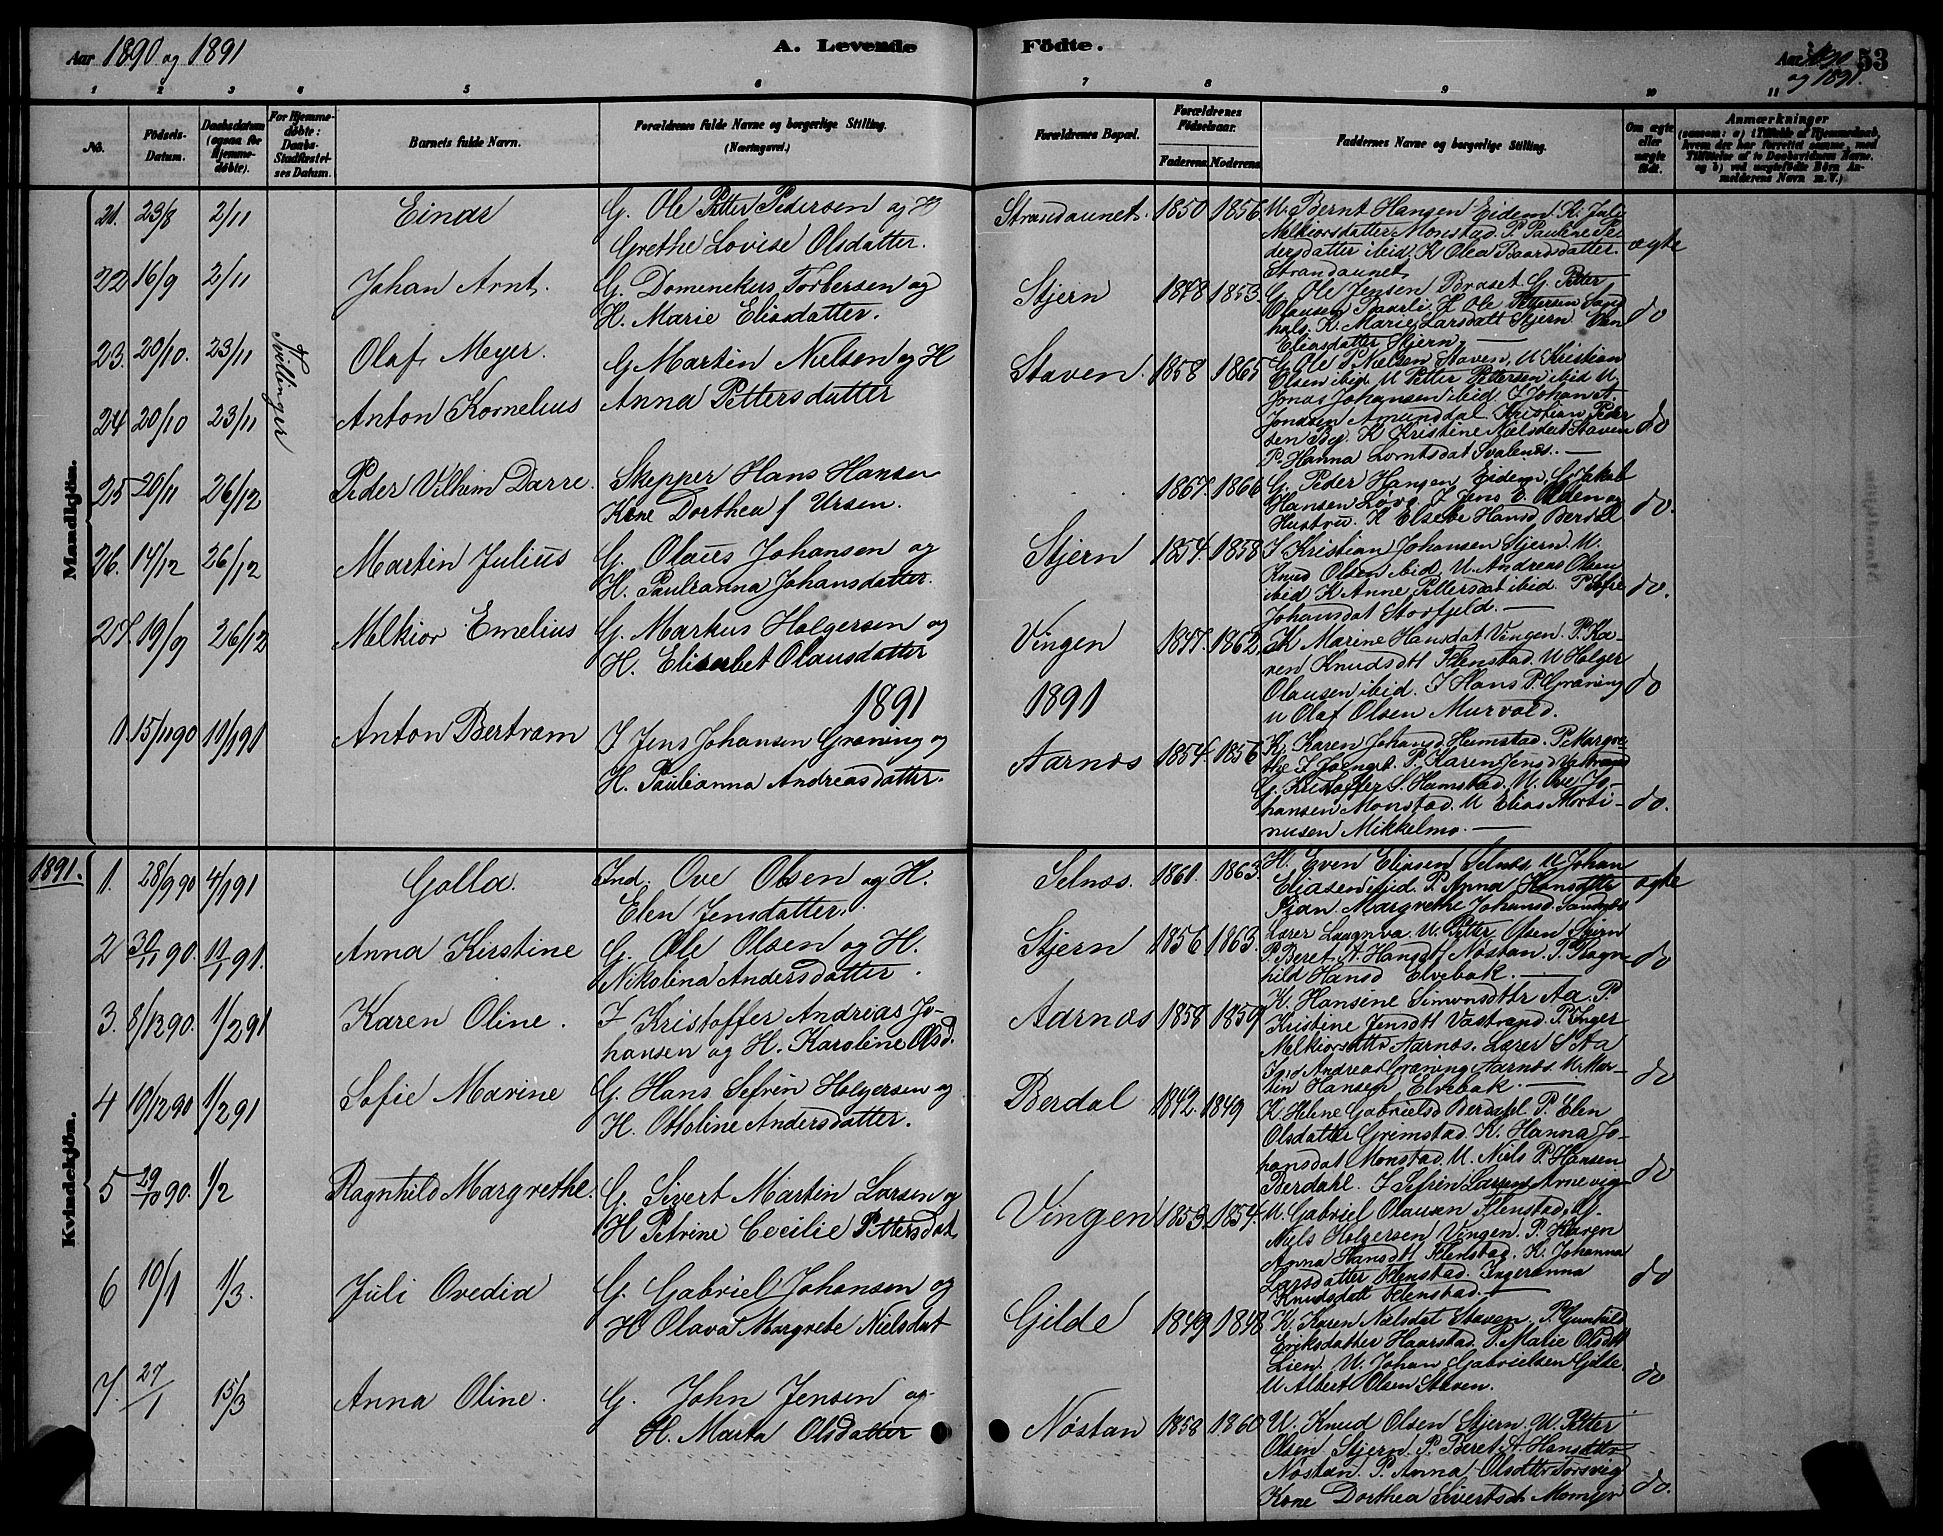 Aar 1890 og 1891
A. Levende
Födte.
Aar 1890 53
og 1891.
1 2 3 4 5 6 7 8 9 10 11
No.
Födsels-
Datum.
Daabsdatum
(ogsaa for
Hjemme-
døbte).
For Hjemme-
døbte:
Daabs-
Stadfæstel-
ses Datum.
Barnets fulde Navn.
Forældrenes fulde Navne og borgerlige Stilling.
(Næringsvei.)
Forældrenes Bopæl.
Forældrenes
Födselsaar.
Faderens. Moderens.
Faddernes Navne og borgerlige Stilling.
Om ægte
eller
uægte
født.
Anmærkninger
Mandkjön.
21. 23/8 2/11 Einar
G. Ole Petter Pedersen og H
Grethe Lovise Olsdatter.
Strandaunet. 1850 1856
U. Bernt Hansen Eidem. K. Juli
Melkiorsdatter Monstad. P. Pauline Pe
dersdatter ibid. K Olea Baardsdatter
Strandaunet
ægte
22 16/9 2/11 Johan Arnt.
G. Domenekus Torbersen og
H. Marie Eliasdatter.
Stjern 1848 1853.
G. Ole Jensen Braset. G. Petter
Olausen
K. Marie Larsdatt Stjern
Eliasdatter Stjern.
do
Tvillinger
23. 20/10. 23/11 Olaf Meyer.
G Martin Nielsen og H
Anna Pettersdatter
Staven. 1858 1865
G. Ole P. Nielsen Staven. U Kristian
Olsen ibid. U Petter Pettersen ibid U.
Jonas Johansen ibid. I Johan A.
24 20/10 23/11 Anton Kornelius
Jondsen Amundal. Kristian Peder
sen By. K Kristine Nielsdat Staven
P. Hanna Lorntsdat Svalenes. —
do
25 20/11 26/12 Peder Vilhelm Darre.
Skepper Hans Hansen
Kone Dorthea f Ursen.
1867. 1866
G. Peder Hansen Eidem. G. Jakob
Hansen Løvø. I Jens v. Olden og
Hustru. K Elsebe Hansd Berdal
do.
26. 14/12 26/12 Martin Julius
G. Olaus Johansen og
H. Paulianna Johansdatter.
Stjern 1854. 1858
I Kristian Johansen Stjern. U.
Knud Olsen ibid. U. Andreas Olsen
ibid K Anne Pettersdat ibid. P Sofie
Johansdat Storfjeld. —
do.
27. 19/9 26/12 Melkior Emelius
G. Markus Holgersen og
H. Elisabet Olausdatter
Vingen 1847. 1862.
K Marine Hansdat Vingen. P. Ka-
ren Knudsdtt Flenstad. U Holger
Olausen ibid. I Hans P. Græning
U Olaf Olsen Murvold.
do
1891
1891
1. 15/11 90 11/1 91 Anton Bertram
I Jens Johansen Græning og
H. Paulianna Andreasdatter.
Aarnes 1854. 1856
K. Karen Johansd Hemstad. P. Margre
the I P. Karen Jensd Vastrand
G. Kristoffer S. Hamstad. U. Ove Jo-
hansen Monstad. U Elias Morti-
nusen Mikkelmo. —
do.
1891.
Kvindekjön.
1. 28/9 90 4/1 91 Golla.
Ind. Ove Olsen og H.
Elen Jensdatter.
Selnes. 1861. 1863.
H. Even Eliasen Selnes. U Johan
Eliasen ibid. P. Anna Hansdtte
Margrethe Johansd. Sandnes
ægte
2 30/11 90. 11/1 91. Anna Kirstine
G. Ole Olsen og H.
Nikolina Andersdatter.
Stjern 1856 1863.
Lærer Laugnva. U. Petter Olsen Stjern
P. Beret A Hansdt Nøstan. P. Ragn-
hild Hansd Elvebak. —
do
3. 8/12 90. 1/2 91 Karen Oline.
I Kristoffer Andrias Jo-
hansen og H. Karoline Olsd.
Aarnes 1858 1859
K. Hansine Simonsdttr Aa. P.
Kristine Jensdtt Vastrand. P. Inger
Melkiorsdttr Aarnes. Lærer S Aa
Andreas Græning Aarnes. U. Mar-
tin Hansen Elvebak. —
do
4 19/12 90 1/2 91 Sofie Marine
G. Hans Sefrin Holgersen og
H. Otteline Andersdatter.
Berdal 1842. 1849
K. Helene Gabrielsd Berdahl. P. Elen
Olsdatter Grimstad. K. Hanna Jo-
hansdat Monstad. U. Niels P. Hansen
Berdahl. I Sefrin Larsens Arnevig
do
5 29/10 90. 1/2 Ragnhild Margrethe.
G. Sivert Martin Larsen og
H Petrine Cecilie Pettersdat
Vingen 1853. 1854.
U. Gabriel Olausen Flenstad. G.
Niels Holgersen Vingen. P. Karen
Anna Hansdtt Flenstad. K. Johanna
Larsdatter Flenstad. Ingeranna
Knudsdatt Flenstad. —
do
6 10/1 1/3. Juli Ovedia
G. Gabriel Johansen og
H Olava Margrete Nielsdat
Gilde 1849 1848
K. Karen Nielsdat Staven. P. Gunhild
Eriksdatter Haarstad. P. Malie Olsdtt
Lien. U. Johan Gabrielsen Gilde.
U Albert Olsen Staven.
do
7. 27/1 15/3 Anna Oline.
G. John Jensen og
H. Marta Olsdatter
Nøstan 1858 1860
U. Knud Olsen Stjern. U. Petter
Olsen Stjern. P. Beret A. Hansdttr
Nøstan. P. Anna Olsdtter Torsvig
Kone Dorthea Sivertsdt
do.